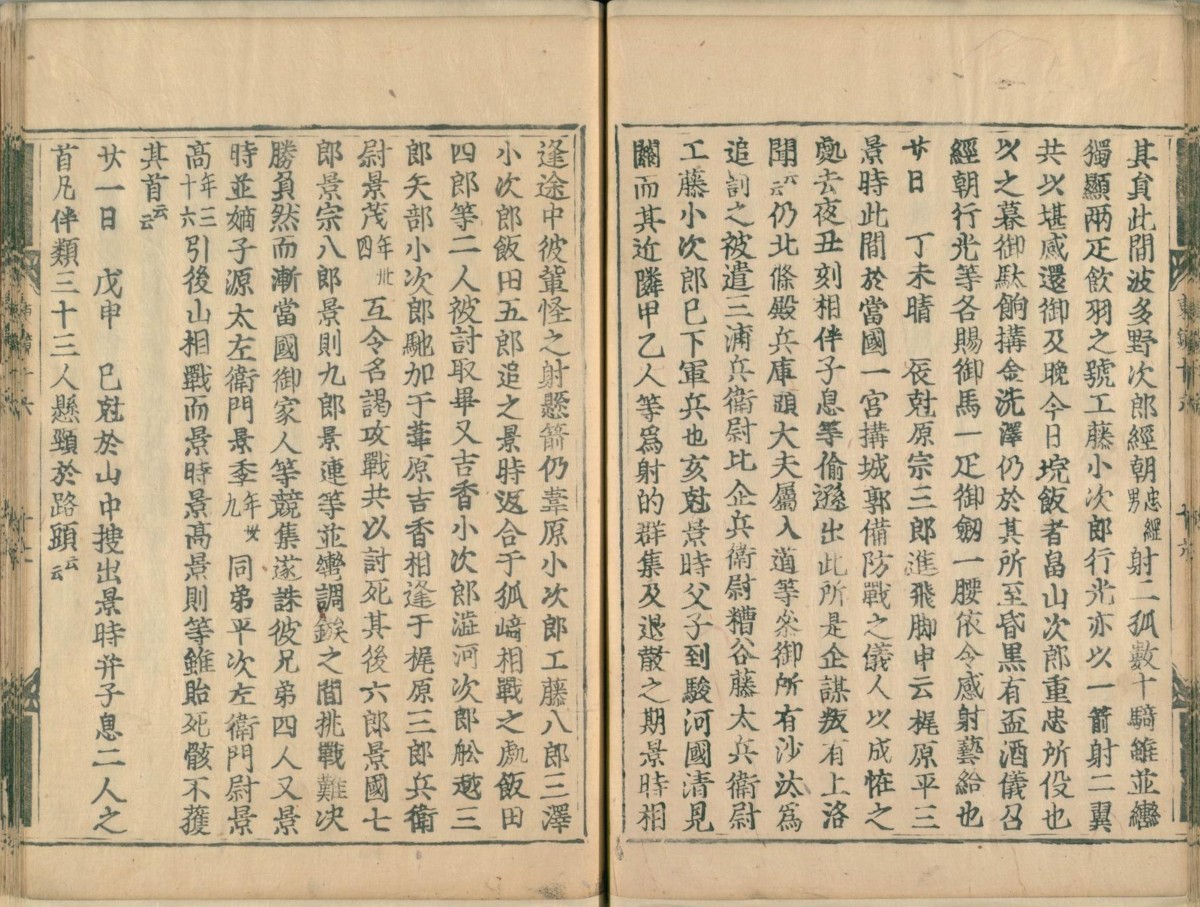 其負此間波多野次郎經朝忠經男射二狐數十騎雖並轡
獨顯兩疋飲羽之號工藤小次郎行光亦以一箭射二翼
共以堪感還御及晩今日垸飯者畠山次郎重忠所役也
以之暮御駄餉搆金洗澤仍於其所至昏黒有盃酒儀召
經朝行光等各賜御馬一疋御劔一腰依令感射藝給也
廿日　丁未晴　辰尅原宗三郎進飛脚申云梶原平三
景時此間於當國一宮搆城郭備防戰之儀人以成恠之
處去夜丑刻相伴子息等偷遜出此所是企謀叛有上洛
聞云云仍北條殿兵庫頭大夫屬入道等参御所有沙汰爲
追討之被遣三浦兵衛尉比企兵衛尉糟谷藤太兵衛尉
工藤小次郎已下軍兵也亥尅景時父子到駿河國清見
關而其近隣甲乙人等爲射的群集及退散之期景時相
逢途中彼輩怪之射懸箭仍葦原小次郎工藤八郎三澤
小次郎飯田五郎追之景時返合于狐﨑相戰之處飯田
四郎等二人被討取畢又吉香小次郎澁河次郎舩越三
郎矢部小次郎馳加于葦原吉香相逢于梶原三郎兵衛
尉景茂年卅四互令名謁攻戰共以討死其後六郎景國七
郎景宗八郎景則九郎景連等並轡調鏃之間挑戰難决
勝負然而漸當國御家人等競集遂誅彼兄弟四人又景
時並嫡子源太左衛門景季年卅九同弟平次左衛門尉景
高年三十六引後山相戰而景時景高景則等雖貽死骸不獲
其首云云
廿一日　戊申　巳尅於山中搜出景時并子息二人之
首凡伴類三十三人懸頸於路頭云云